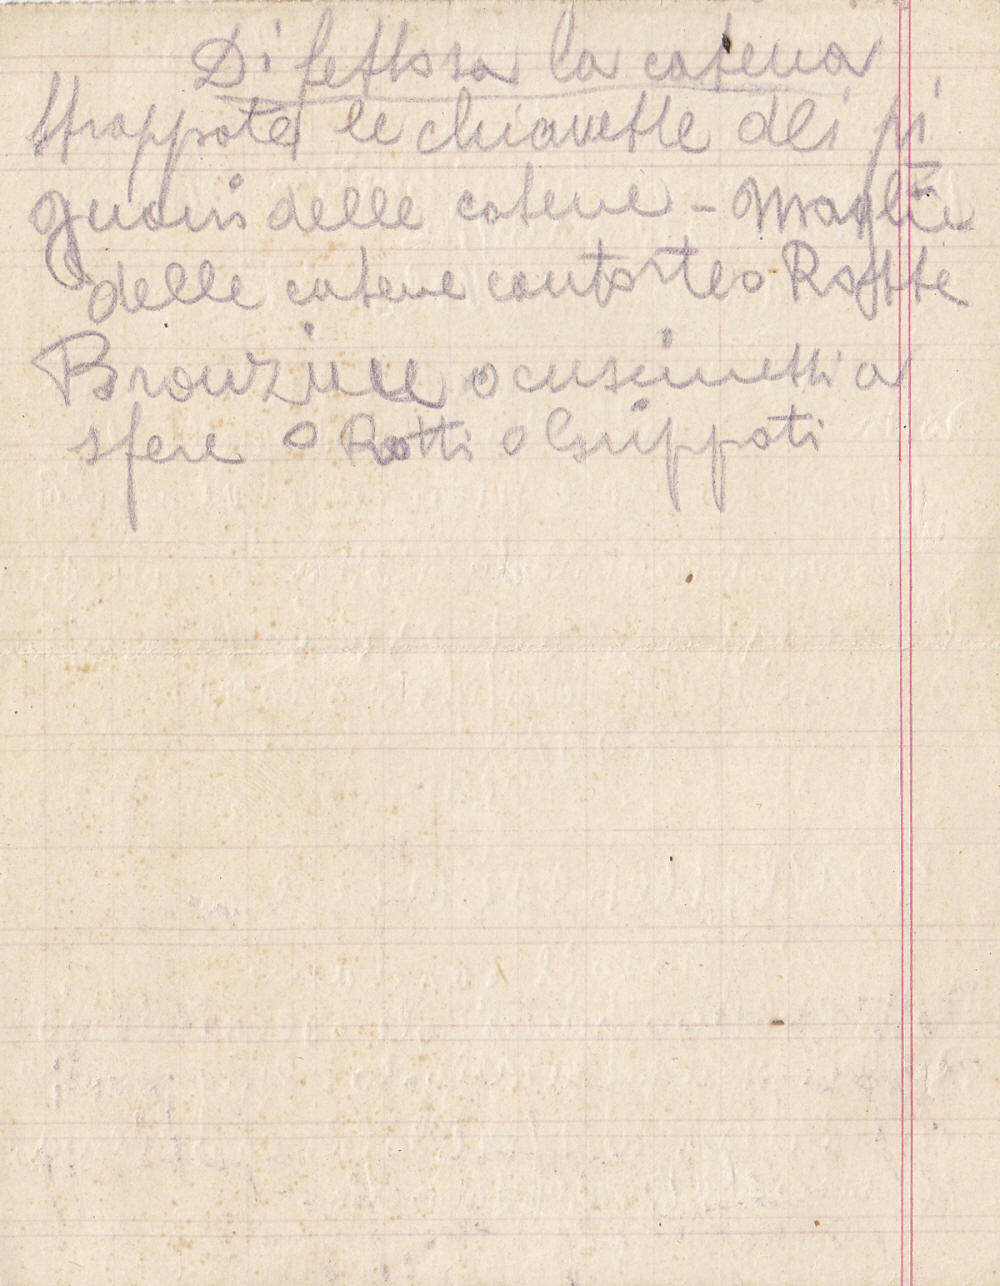 Difettosa la catena
Strappate le chiavette dei pi
gnoni delle catene - Maglie
delle catene contorte o Rotte
Bronzine o cuscinetti a
sfere o Rotti o Grippati